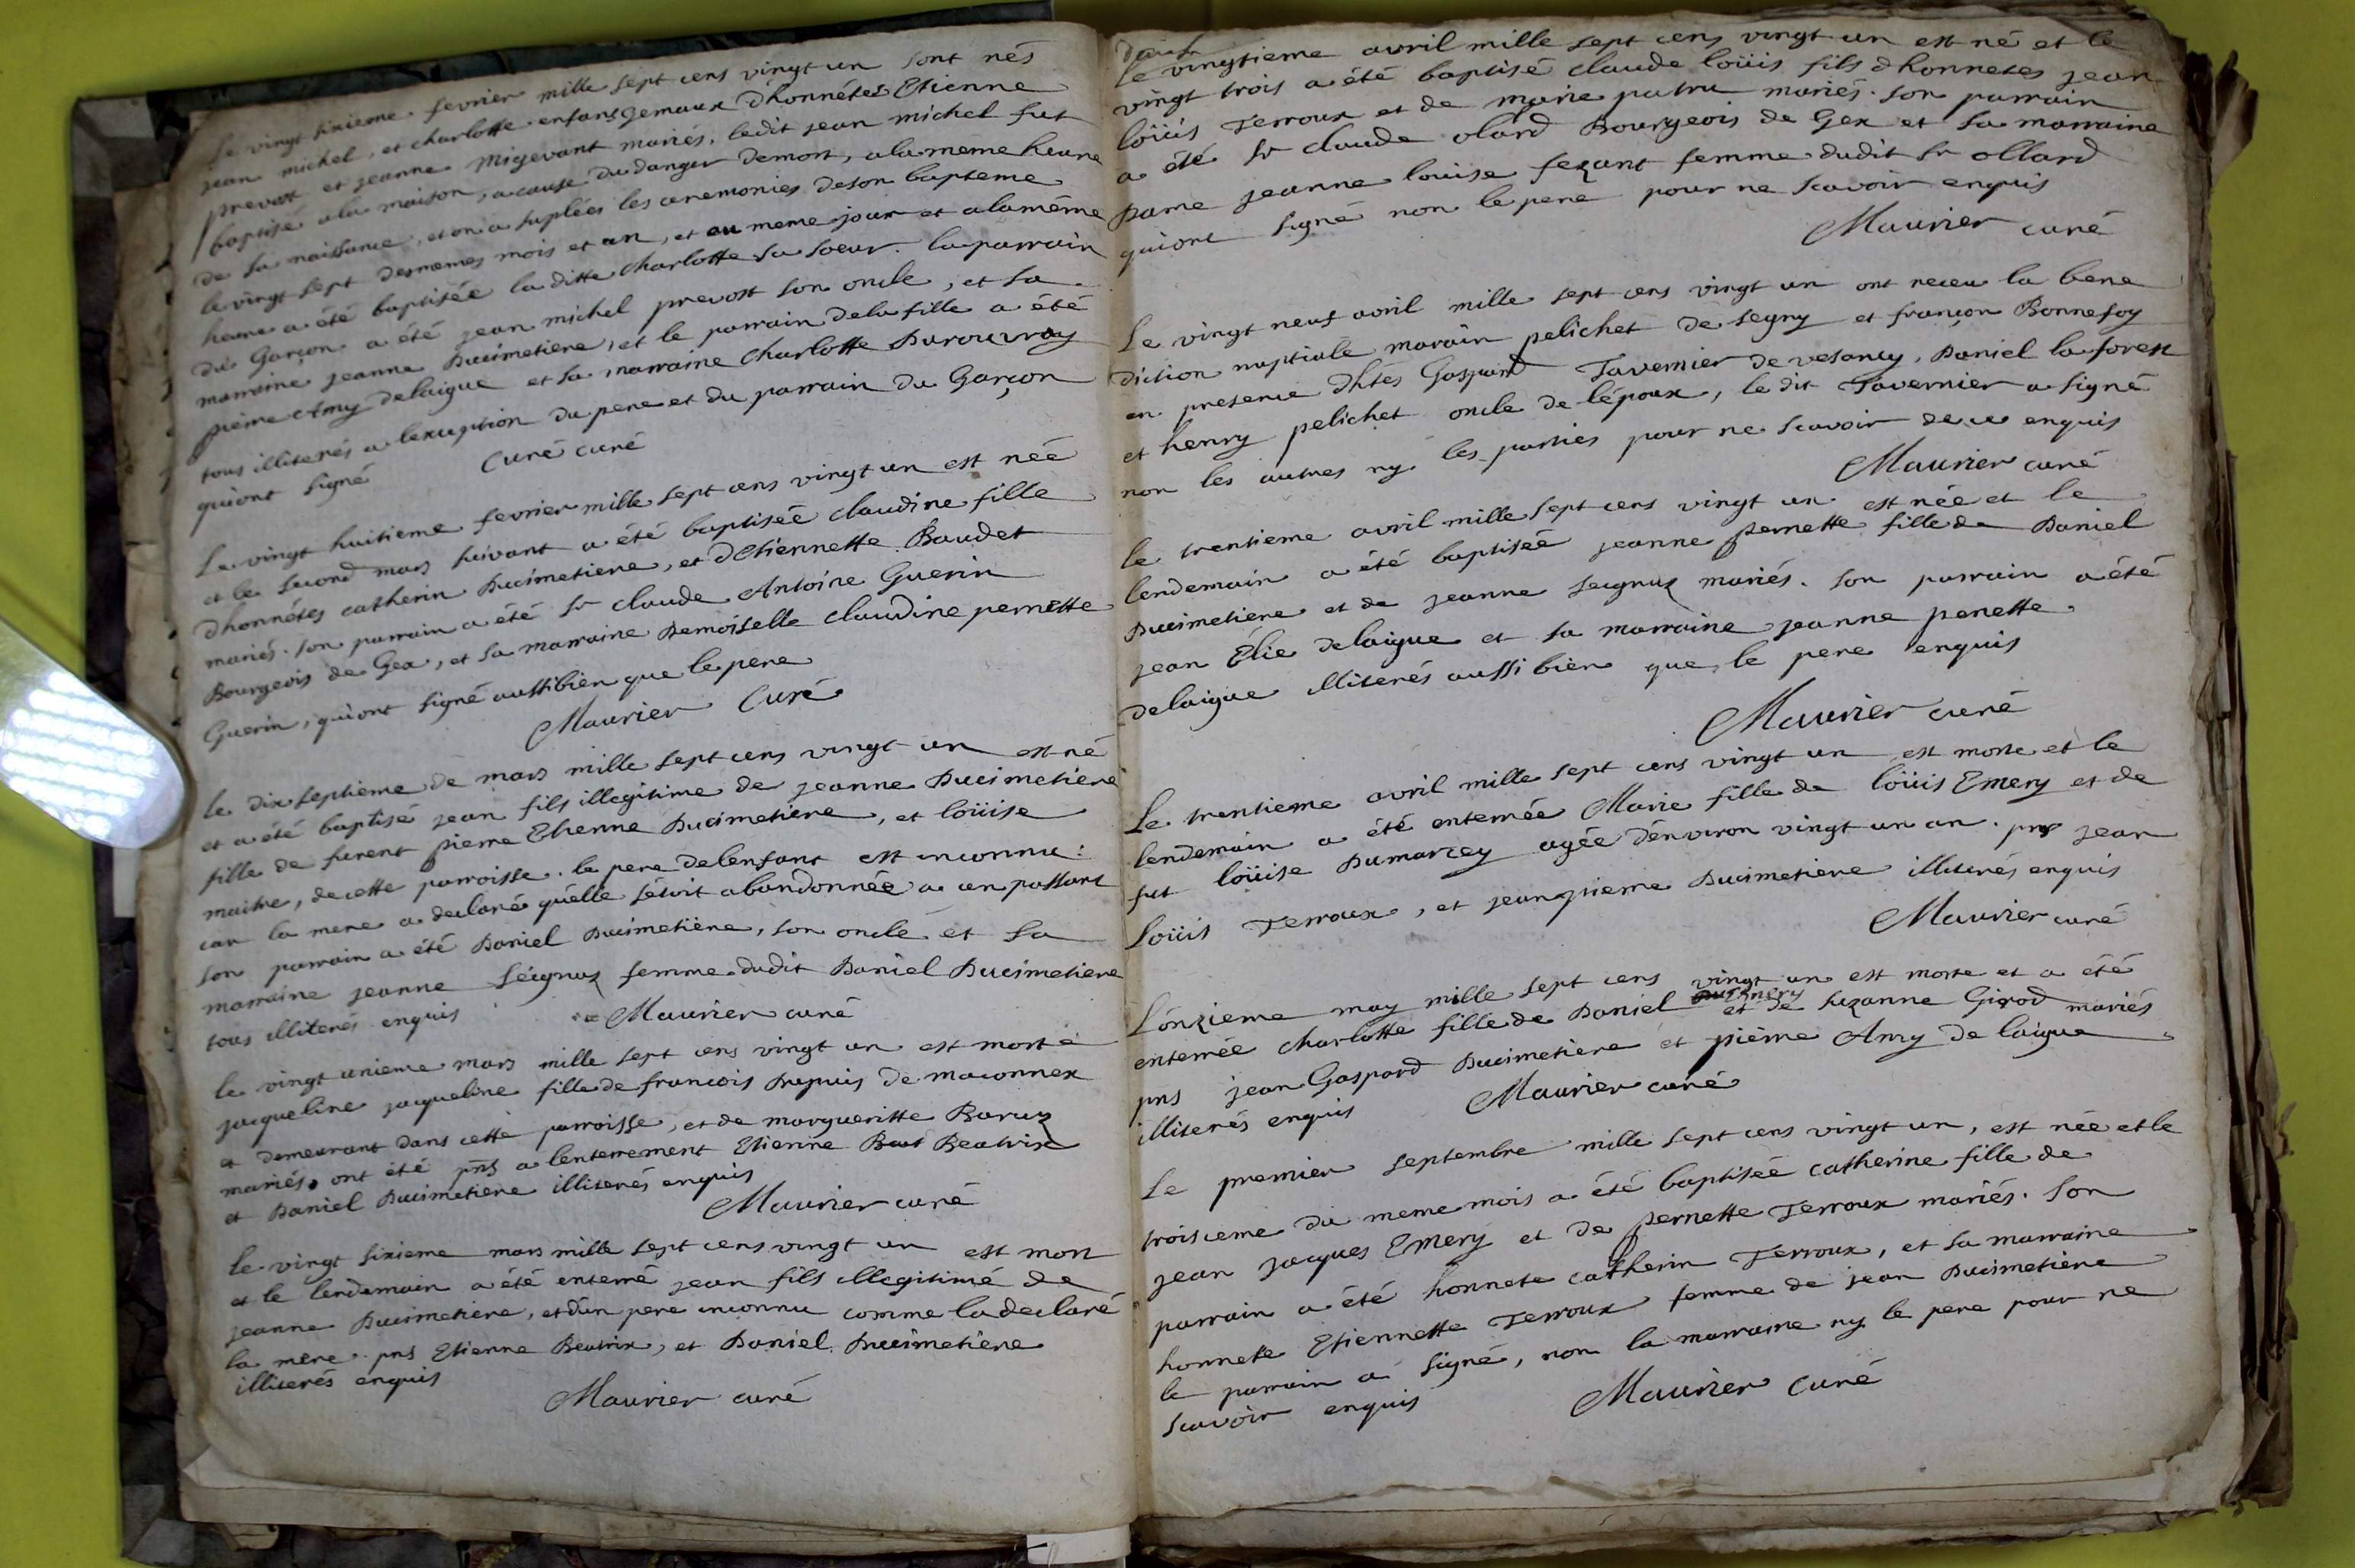 Le vingt sixieme fevrier mille sept cens vingt un sont nés
jean michel, et charlotte enfans gemaux d'honnétes Etienne
prevost et jeanne Migevant mariés, ledit jean michel fut
baptisé a la maison, a cause du danger de mort, a la meme heure
de sa naissance, et on a suplées les ceremonies de son bapteme
le vingt sept desmemes mois et an, et au meme jour et a la méme
heure a été baptisée la ditte charlotte sa soeur. le parrain
du Garçon a été jean michel prevost son oncle, et sa
marraine jeanne Ducimetiere, et le parrain dela fille a été
pierre Amy Delaigue et sa marraine Charlotte Durouvray
tous illiterés a lexception du pere et du parrain du Garçon
quiont signé curé curé
Le vingt huitieme fevrier mille sept cens vingt un est née
et le second mars suivant a été baptisée claudine fille
dhonnétes catherin Ducimetiere, et d'Etiennette Baudet
mariés. son parrain a été sr claude Antoine Guerin
Bourgeois de Gex, et sa marraine Demoiselle claudine pernette
Guerin, quiont signé aussi bien que le pere
Maurier Curé
le dix septieme de mars mille sept cens vingt un est né
et a été baptisé jean fils illegitime de jeanne Ducimetiere
fille de furent pierre Etienne Ducimetiere, et loüise
maitre, de cette parroisse. le pere delenfant est inconnu:
car la mere a declaré quélle s'étoit abandonnée a un passant
son parrain a été Daniel Ducimetiere, son oncle et sa
marraine jeanne Seignuz femme dudit Daniel Ducimetiere
tous illiterés enquis Maurier curé
le vingt unieme mars mille sept cens vingt un est morte
jacqueline jacqueline fille de francois Dupuis de maconnex
et demeurant dans cette parroisse, et de margueritte Baruz
mariés, ont été pns a lenterrement Etienne Beatrix
et Daniel Ducimetiere illiterés enquis
Maurier curé
le vingt sixieme mars mille sept cens vingt un est mort
et le lendemain a été enterré jean fils illegitimé de
jeanne Ducimetiere, et d'un pere inconnu comme la declaré
la mere. pns Etienne Beatrix, et Daniel Ducimetiere
illiterés enquis
Maurier curé
Le vingtieme avril mille sept cens vingt un est né et le
vingt trois a été baptisé claude loüis fils dhonnetes jean
loüis Terroux et de marie patru mariés. son parrain
a été sr claude olard Bourgeois de Gex et sa marraine
Dame jeanne louise fezant femme dudit sr ollard
quiont signé non le pere pour ne scavoir enquis
Maurier curé
Le vingt neuf avril mille sept cens vingt un ont receu la bene
diction nuptiale marain pelichet de segny et françon Bonnefoy
en presence dhtés Gaspard Tavernier de vesancy, Daniel laforest
et henry pelichet oncle de lépoux, ledit Tavernier a signé
non les autres ny les parties pour ne scavoir de ce enquis
Maurier curé
le trentieme avril mille sept cens vingt un est née et le
lendemain a été baptisée jeanne pernette fille de Daniel
Ducimetiere et de jeanne Seignuz mariés. son parrain a été
jean Elie delaigue et sa marraine jeanne penette
delaigue illiterés aussi bien que le pere enquis
Maurier curé
Le trentieme avril mille sept cens vingt un est morte et le
lendemain a été enterrée Marie fille de loüis Emery et de
fut loüise Dumarcey agée d'environ vingt un an. pns jean
Loüis Terroux, et jeanpierre Ducimetiere illiterés enquis
Maurier curé
L'onzieme may mille sept cens vingt un est morte et a été
Emery
enterrée charlotte fille de Daniel et de suzanne Girod mariés
pns jean Gaspard Ducimetiere et pierre Amy De laigue
illiterés enquis Maurier curé
Le premier septembre mille sept cens vingt un, est née et le
troisieme du meme mois a été baptisée catherine fille de
jean jacques Emery et de pernette Terroux mariés. son
parrain a été honnete catherin Terroux, et sa marraine
honnete Etiennette Terroux femme de jean Ducimetiere
le parrain a signé, non la marraine ny le pere pour ne
scavoir enquis Maurier Curé